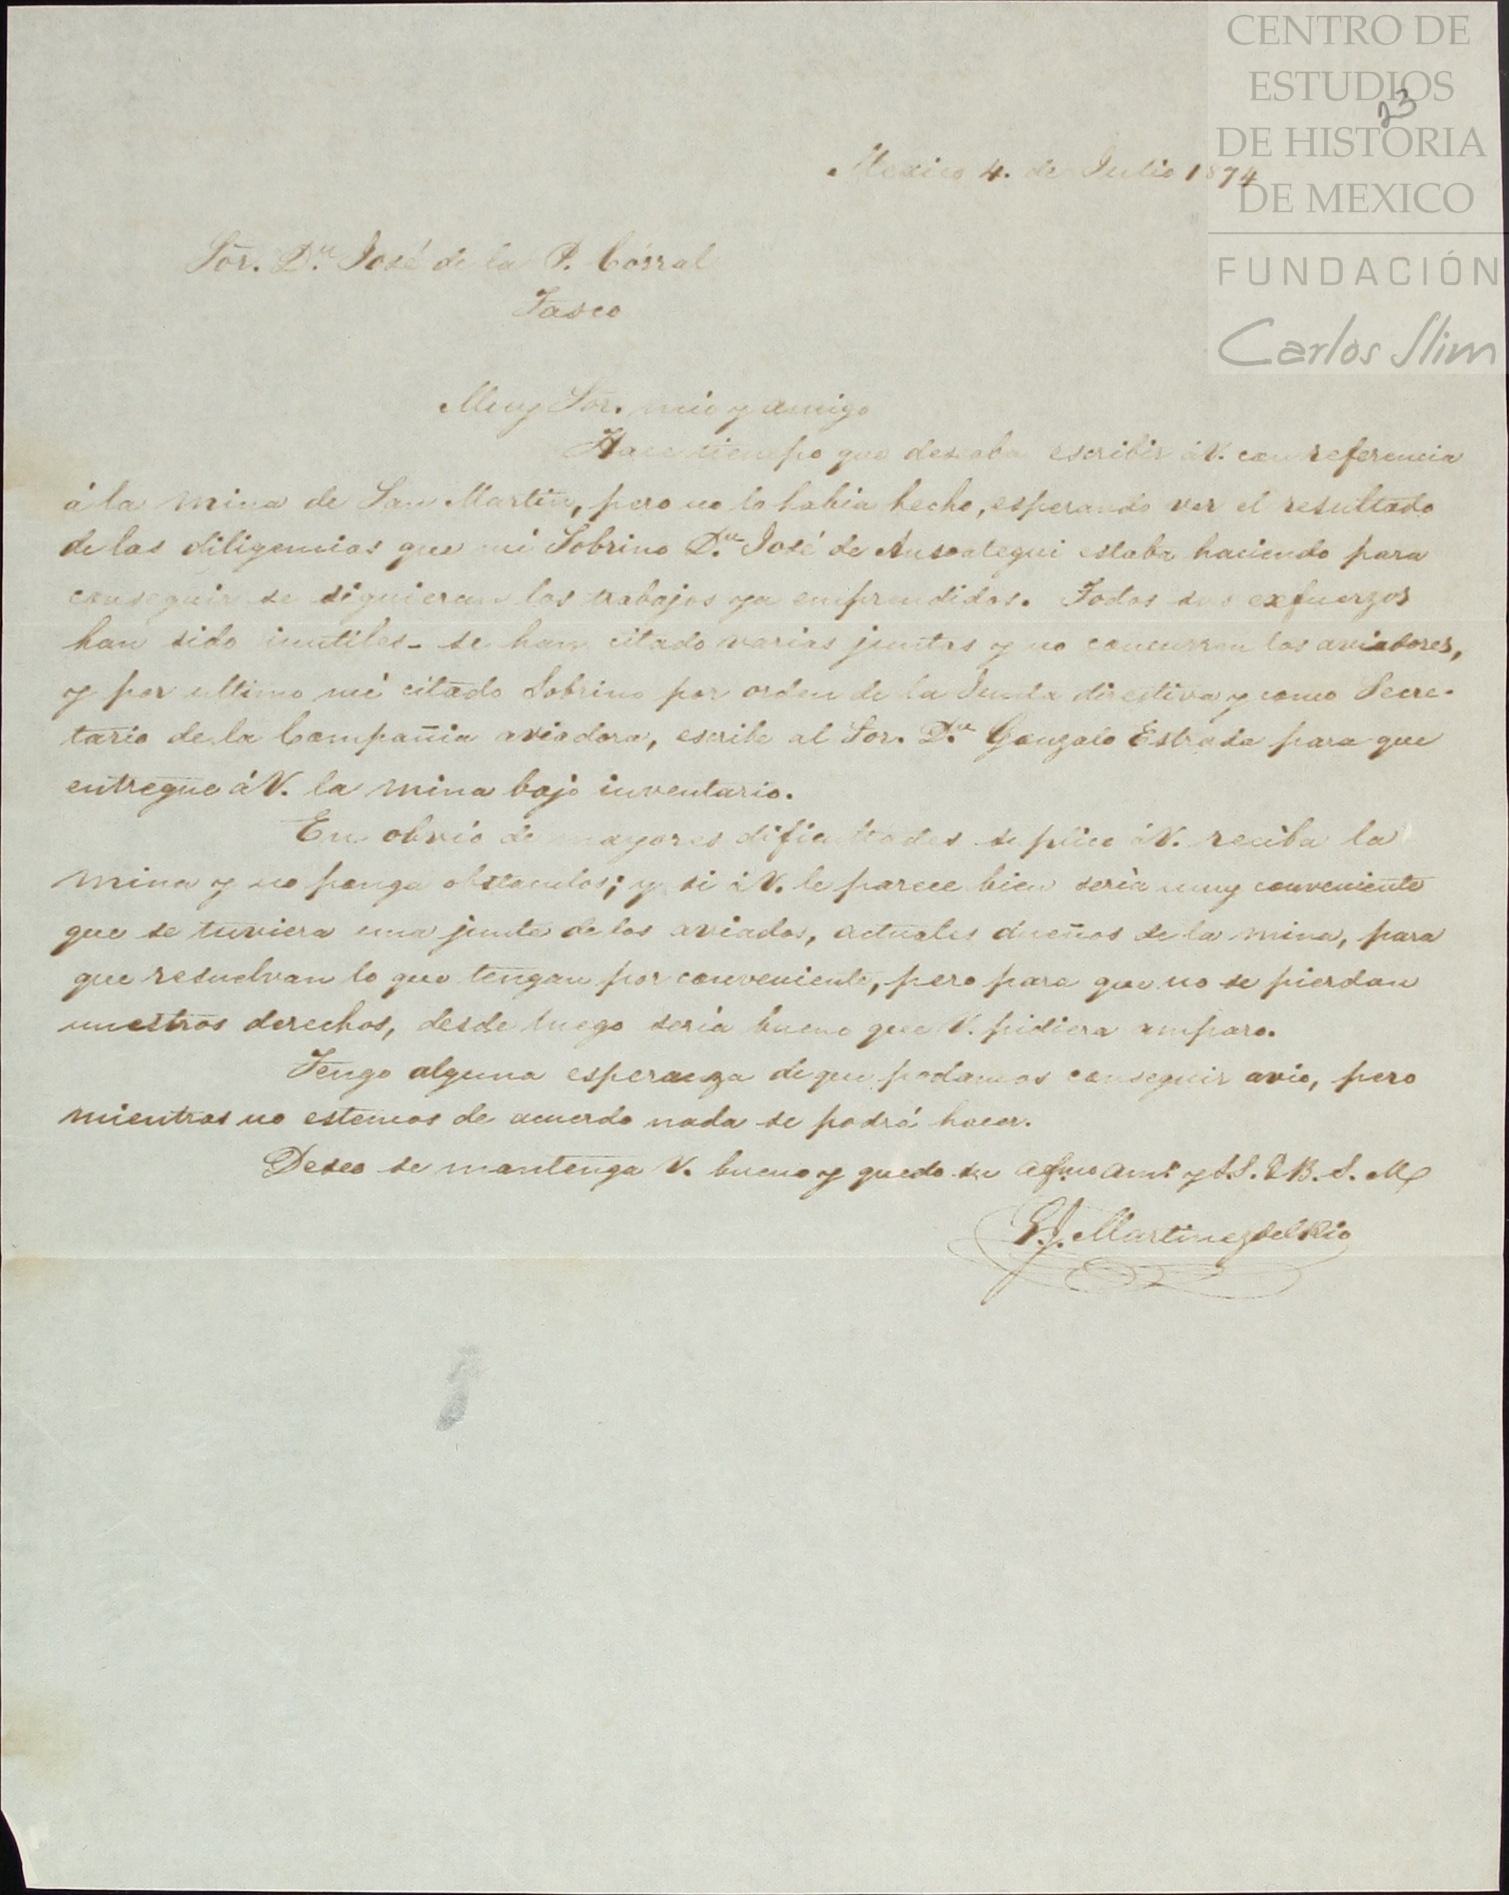 CENTRO DE
ESTUDIOS
DE HISTORIA
DE MEXICO
FUNDACIÓN
Carlos Slim
23
Mexico 4. de Julio 1874
Sor. Dn. José de la P. Córral
Tasco
Muy Sor. mio y amigo
Hace tiempo que deseaba escribir á V. con referencia
á la mina de San Martin, pero no lo habia hecho, esperando ver el resultado
de las diligencias que mi Sobrino Dn. José de Ansoategui estaba haciendo para
conseguir se siguieran los trabajos ya emprendidos. Todos sus exfuerzos
han sido inutiles - se han citado varias juntas y no concurren los aviadores,
y por ultimo mi citado Sobrino por orden de la Junta directiva y como Secre-
tario de la Compañia aviadora, escribe al Sor. Dn. Gonzalo Estrada para que
entregue á V. la mina bajo inventario.
En obvio de mayores dificultades suplico á V. reciba la
mina y no ponga obstaculos; y si á V. le parece bien seria muy conveniente
que se tuviera una junta de los aviados, actuales dueños de la mina, para
que resuelvan lo que tengan por conveniente, pero para que no se pierdan
nuestros derechos, desde luego seria bueno que V. pidiera amparo.
Tengo alguna esperanza de que podamos conseguir avio, pero
mientras no estemos de acuerdo nada se podrá hacer.
Deseo se mantenga V. bueno y quedo su afmo amo. y S.S. Q B. S. M
G. J. Martinez del Rio